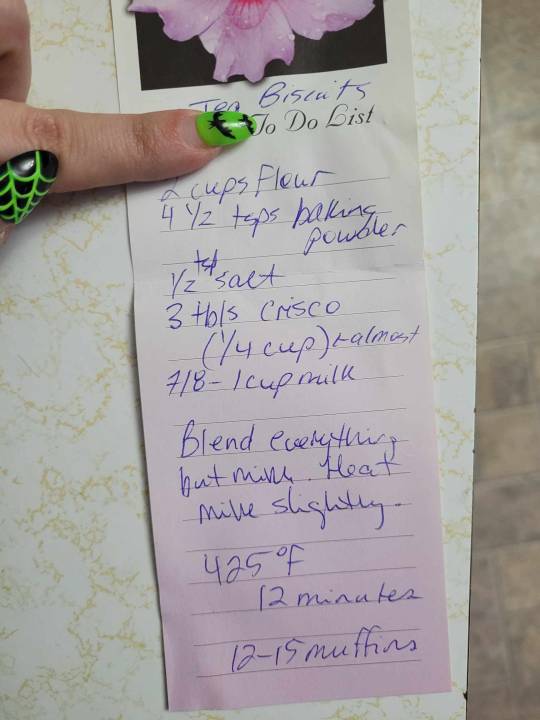 Tea Biscuits
To Do List
2 cups Flour
4 1/2 tsps baking
powder
1/2 tsp salt
3 tbls crisco
(1/4 cup) ← almost
7/8 - 1 cup milk
Blend everything
but milk. Heat
milk slightly.
425°F
12 minutes
12-15 muffins